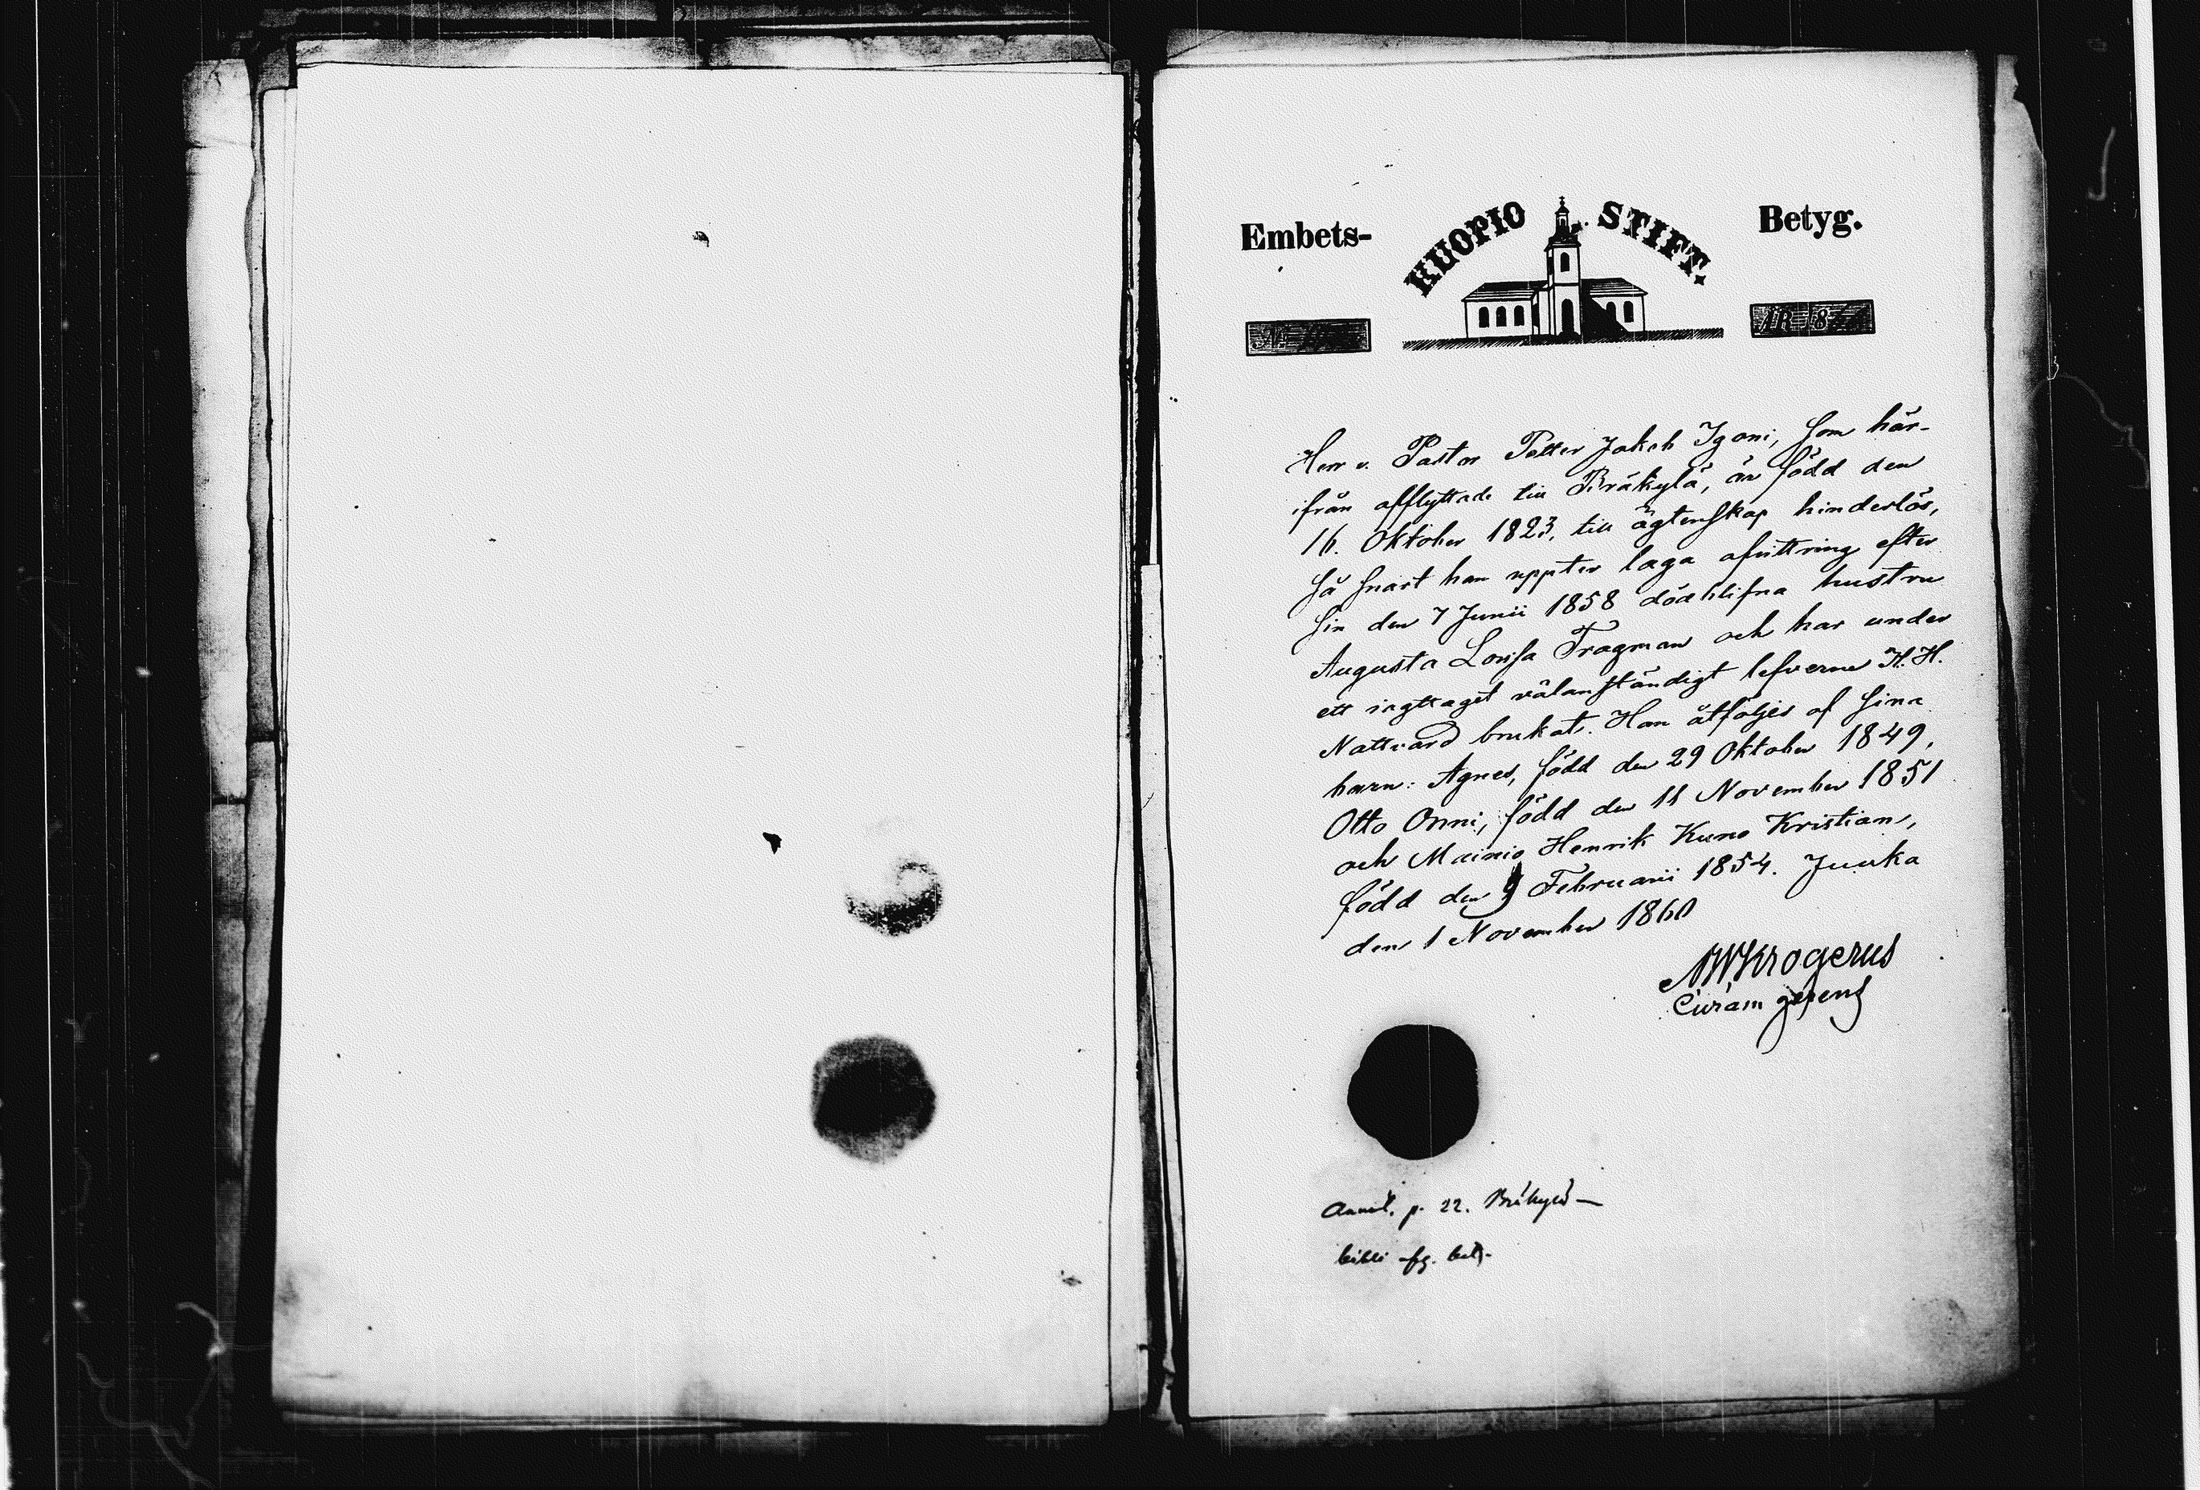 Embets- KUOPIO STIFT. Betyg.
ÅR 18
Herr v. Pastor Petter Jakob Ygoni, som här-
ifrån afflyttade till Bräkylä, är född den
16. Oktober 1823, till ägtenskap hinderlös,
så snart han uppter laga afvittring efter
sin den 7 Junii 1858 dödblifna hustru
Augusta Lovisa Tragman och har under
ett iagttaget välanständigt lefverne H. H.
Nattvard brukat. Han åtföljes af sina
barn: Agnes, född den 29 Oktober 1849,
Otto Onni, född den 11 November 1851
och Mainio Henrik Kuno Kristian,
född den 9 Februarii 1854. Juuka
den 1 November 1860
Krogerus
Curam gerens
p. 22.